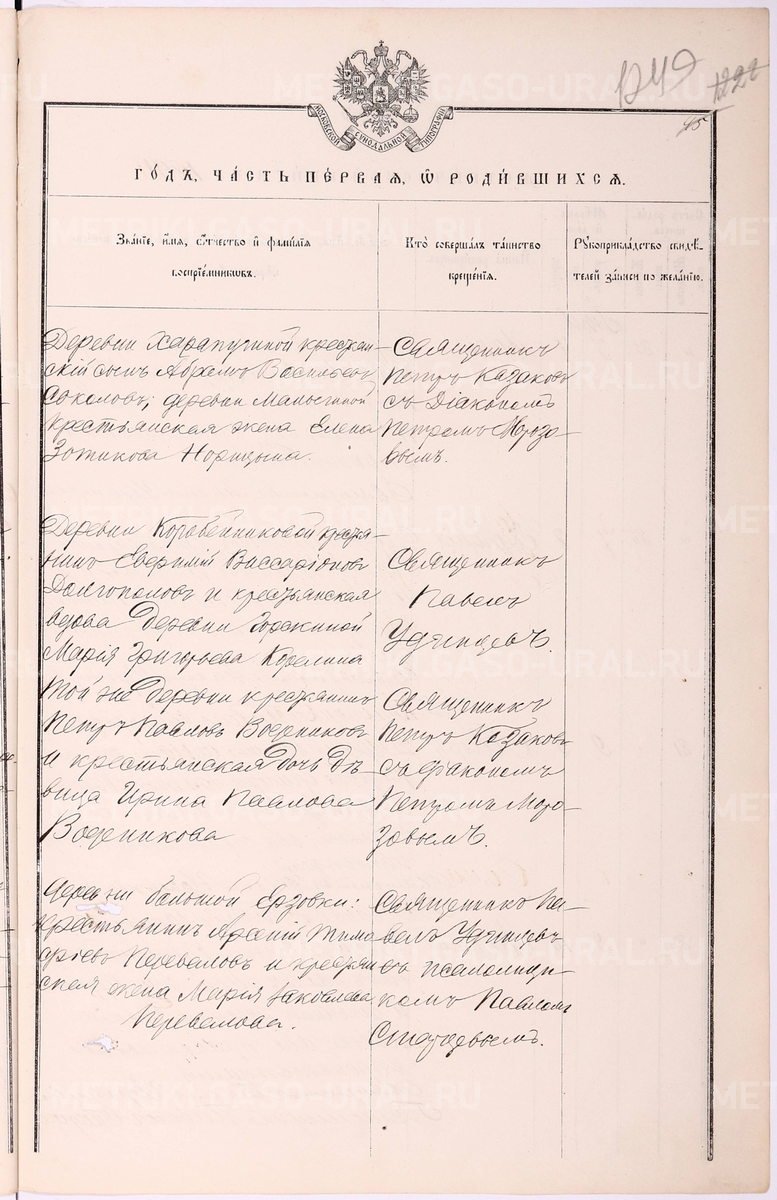 1222
45
МОСКОВСКОЙ СѴНОДАЛЬНОЙ ТИПОГРАФІИ
ГО́ДЪ, ЧА́СТЬ ПЕ́РВАЯ, Ѡ҆ РОДИ́ВШИХСЯ.
Зва́нїе, и҆́мя, ѻ҆́тчество и҆ фами́лїя
воспрїе́мниковъ.
Кто̀ соверша́лъ та́инство
креще́нїя.
Рꙋкоприкла́дство свидѣ́-
телей за́писи по жела́нїю.
Деревни крестьян-
скій сынъ Абрамъ Васильевъ
Соколовъ; деревни
крестьянская жена Елена
Зотикова Норицына.
Священникъ
Петръ Казаковъ
съ Діакономъ
Петромъ Моро-
вымъ.
Деревни Коробейниковой кресть-
нинъ Евфимій Виссаріоновъ
Долгополовъ и крестьянская
вдова деревни
Марія Григорьева Корелина
Священникъ
Павелъ
Удинцевъ.
Той же деревни крестьянинъ
Петръ Павловъ Водениковъ
и крестьянская дочь дѣ-
вица Ирина Павлова
Воденикова
Священникъ
Петръ Казаковъ
съ діакономъ
Петромъ Моро-
зовымъ.
Деревни большой Ерзовки:
крестьянинъ Арсеній Тимо-
Переваловъ и крестьян-
ская жена Марія Іаковлева
Перевалова.
Священникъ Па-
велъ Удинцевъ
съ псаломщи-
комъ Павломъ
Старцевымъ.
METRIKI.GASO-URAL.RU